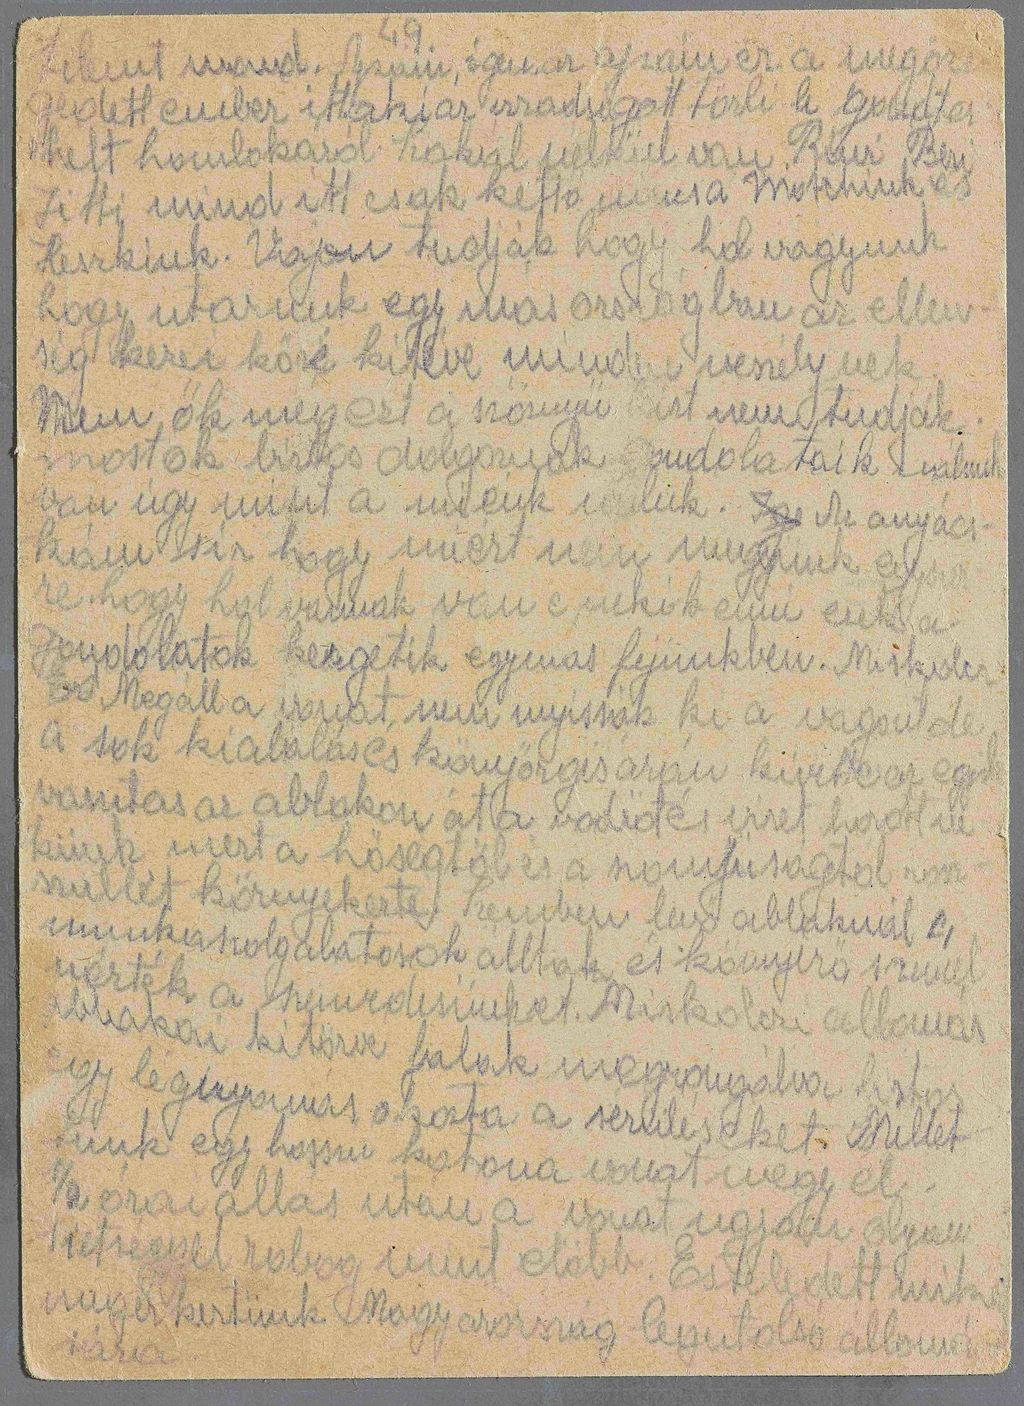 49
mond. igen az a megősz
ember izzadságot törli le gond ter
helt homlokáról. szakál nélkül van. Beri
mind itt csak kettő nincs a Motchiuk és
Heskiuk. Vajon tudják hogy hol vagyunk
hogy utazunk egy mas országban az ellen-
ség kezei közé kitéve minden veszélynek.
Nem, ők meg ezt a szörnyű nem tudják.
most ők biztos dolgoznak gondolataik nálunk
van úgy mint a mienk náluk. Az anyács-
kám sír hogy miért nem megyünk egysze
re. hogy hol vannak van e nekik enni ezek a
gondolatok kergetik egymas fejünkben. Miskolcz
Megáll a vonat, nem nyissák ki a vagont de
a sok kiabalás és könyörgés árán kivitte az egyik
vasutas az ablakon át a vödröt és vizet hozott ne-
künk mert a hőségtől és a szomjuságtól rosz-
szullét környékezte. Szemben levő ablaknál 4
munkaszolgálatosok álltak és könnyező szemmel
nézték a szenvedésünket. Miskolczi állomás
ablakai kitörve falak megrongálva biztos
egy légnyomás okozta a sérüléseket. Mellet-
tünk egy hosszu katona vonat megy el.
1/2 órai állás utan a vonat ugyan olyan
robog mint előbb. Esteledett mikor
megérkeztünk Magyarország legutolso állomá-
sára.